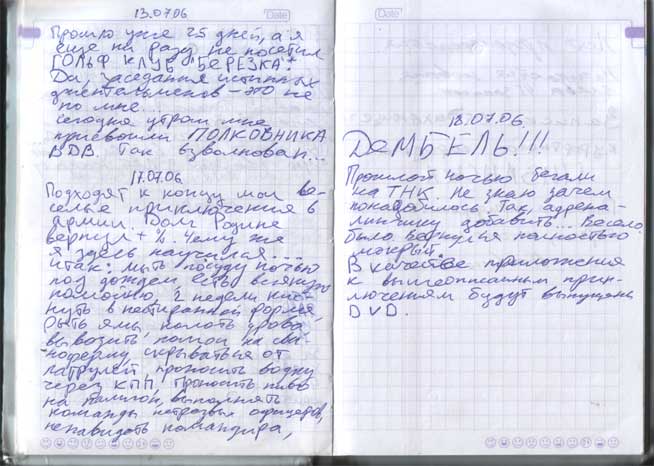 13.07.06
Date
Прошло уже 25 дней, а я
еще ни разу не посетил
ГОЛЬФ КЛУБ "БЕРЕЗКА"
Да, заседания истинных
джентельменов - это не
по мне...
сегодня утром мне
присвоили ПОЛКОВНИКА
ВДВ. Так взволнован...
17.07.06
Подходят к концу мои ве-
селые приключения в
армии. Долг Родине
вернул + %. Чему же
я здесь научился...
итак: мыть посуду ночью
под дождем, есть всякую
2 недели
в нестиранной форме
рыть ямы, колоть дрова,
вывозить помои на сви-
ноферму, скрываться от
патрулей, проносить водку
через КПП, проносить пиво
на полигон, выполнять
команды нетрезвых офицеров,
ненавидеть командира,
Date
18.07.06
ДЕМБЕЛЬ!!!
Прошлой ночью бегали
на ТНК. Не знаю зачем
понадобилось. Так, адрена-
линчику добавить... Весело
было. Вернулся полностью
мокрый.
В качестве приложения
к вышеописанным прик-
лючениям будут выпущены
DVD.